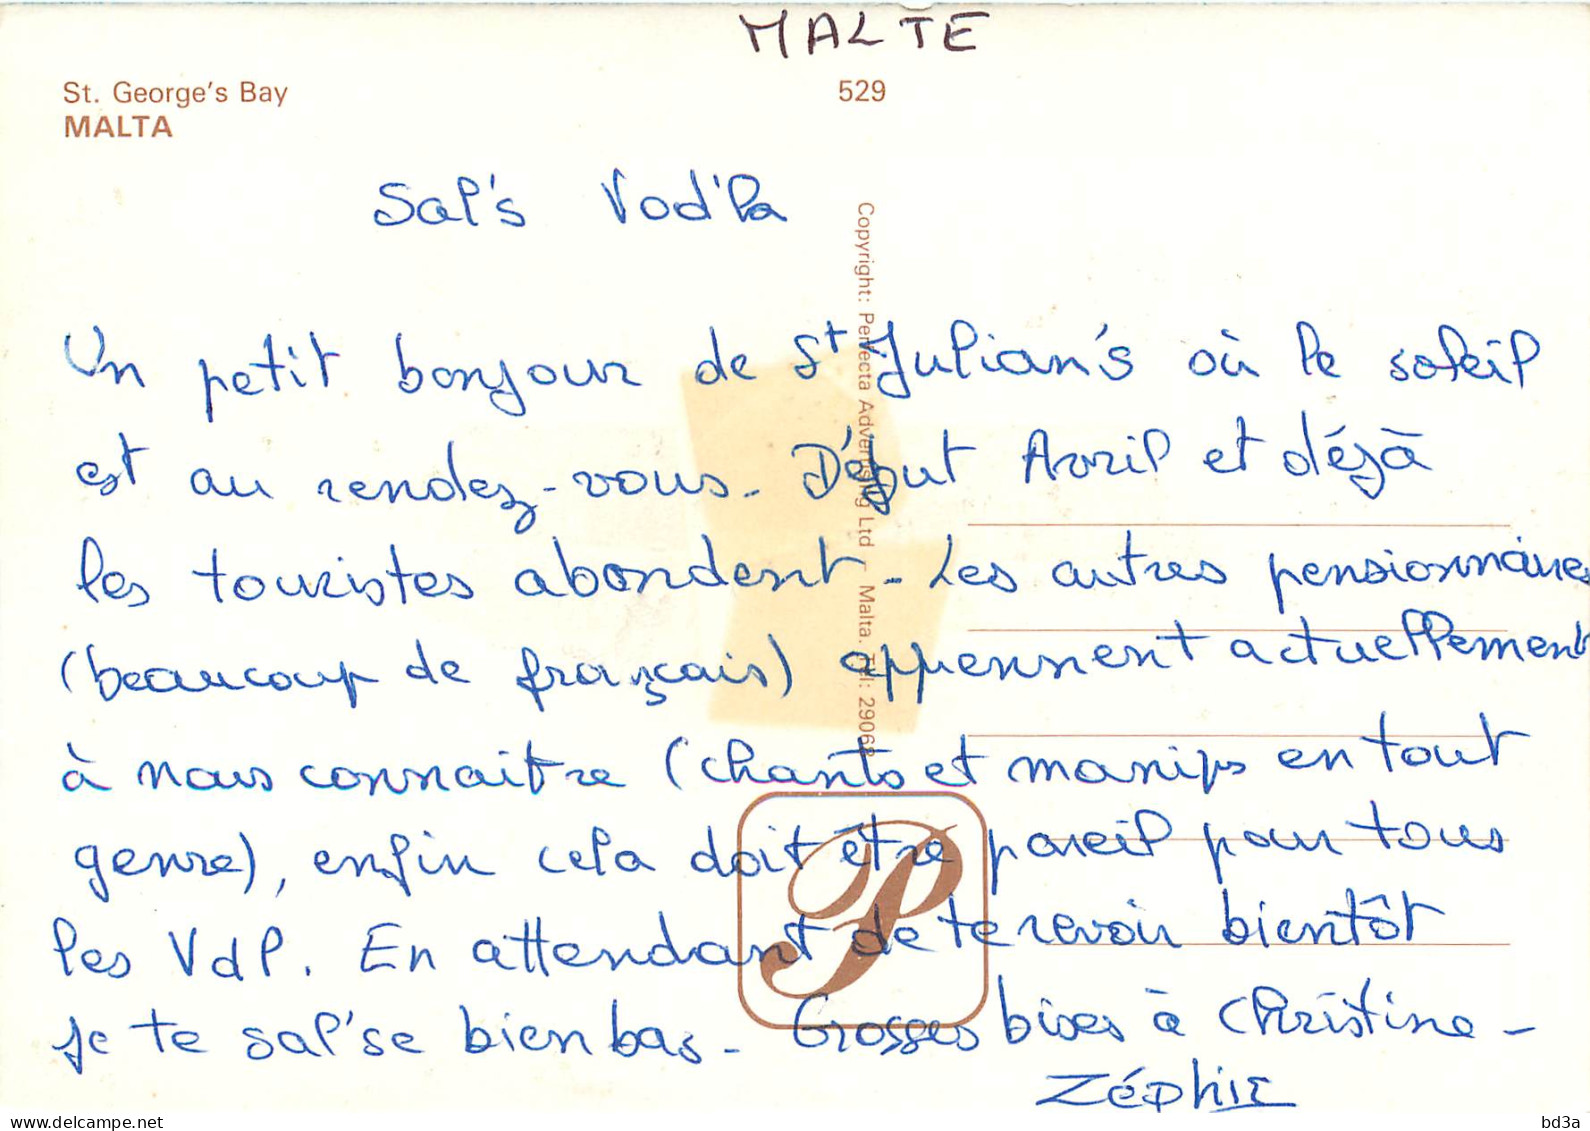 MALTE
St. George's Bay
529
MALTA
Sal's Vod'la
Copyright: Perfecta Advertising Ltd – Malta. Tel: 29068
Un petit bonjour de St Julian's où le soleil
est au rendez-vous. Début Avril et déjà
les touristes abondent - Les autres pensionnaires
(beaucoup de français) apprennent actuellement
à nous connaitre (chants et manips en tout
genre), enfin cela doit être pareil pour tous
les VdP. En attendant de te revoir bientôt
je te sal'se bien bas - Grosses bises à Christine -
Zéphir
P
delcampe.net
bd3a